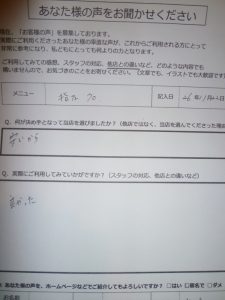 あなた様の声をお聞かせください
現在、「お客様の声」を募集しております。
実際にご利用くださったあなた様の率直な声が、これからご利用される方にとって
非常に参考になり、私どもにとっても何よりの力となります。
ご利用してみての感想、スタッフの対応、他店との違いなど、どのような内容でも
構いませんので、お気づきのことをお寄せください。(文章でも、イラストでも大歓迎です
メニュー 指圧 70 記入日
Q. 何が決め手となって当店を選びましたか?(他店ではなく、当店を選んでくださった理由
安いから
Q. 実際にご利用してみていかがですか?(スタッフの対応、他店との違いなど)
良かった
Q. あなた様の声を、ホームページなどでご紹介してもよろしいですか? □はい □匿名で □ダメ
お名前